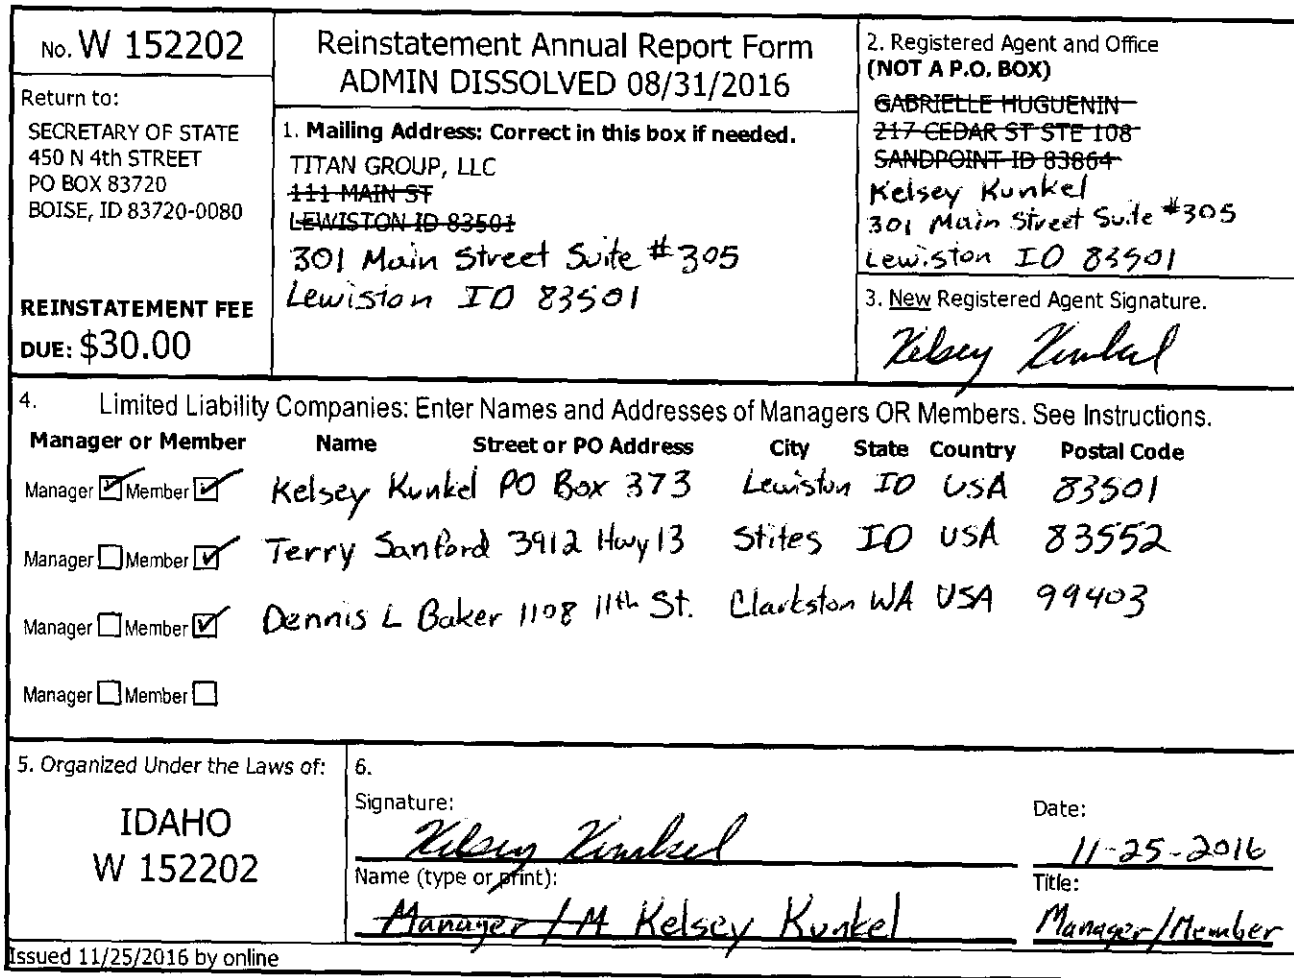 No. W 152202
Return to:
SECRETARY OF STATE
450 N 4th STREET
PO BOX 83720
BOISE, ID 83720-0080
REINSTATEMENT FEE
DUE: $30.00
Reinstatement Annual Report Form
ADMIN DISSOLVED 08/31/2016
1. Mailing Address: Correct in this box if needed.
TITAN GROUP, LLC
111 MAIN ST
LEWISTON ID 83501
301 Main Street Suite #305
Lewiston ID 83501
2. Registered Agent and Office
(NOT A P.O. BOX)
GABRIELLE HUGUENIN
217 CEDAR ST STE 108
SANDPOINT ID 83864
Kelsey Kunkel
301 Main Street Suite #305
Lewiston ID 83501
3. New Registered Agent Signature.
Kelsey Kunkel
4. Limited Liability Companies: Enter Names and Addresses of Managers OR Members. See Instructions.
Manager or Member Name Street or PO Address City State Country Postal Code
Manager Member Kelsey Kunkel PO Box 373 Lewiston ID USA 83501
Manager Member Terry Sanford 3912 Hwy 13 Stites ID USA 83552
Manager Member Dennis L Baker 1108 11th St. Clarkston WA USA 99403
Manager Member
5. Organized Under the Laws of:
IDAHO
W 152202
6.
Signature:
Kelsey Kunkel
Date:
11-25-2016
Name (type or print):
Manager / M Kelsey Kunkel
Title:
Manager/Member
Issued 11/25/2016 by online